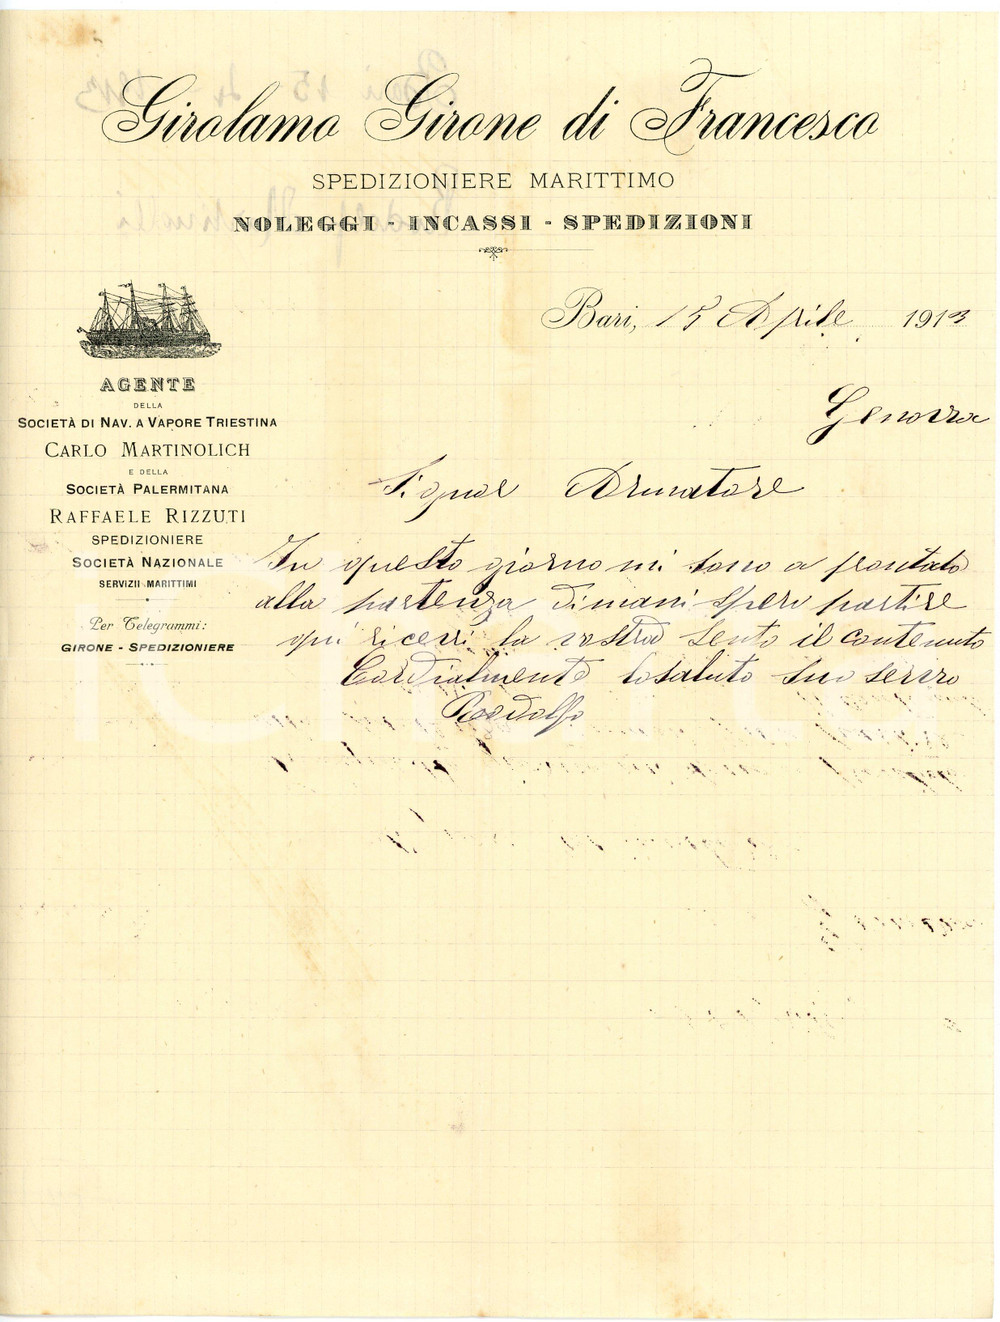 Girolamo Girone di Francesco
SPEDIZIONIERE MARITTIMO
NOLEGGI - INCASSI - SPEDIZIONI
Bari, 15 Aprile 1913
AGENTE
DELLA
SOCIETÀ DI NAV. A VAPORE TRIESTINA
CARLO MARTINOLICH
E DELLA
SOCIETÀ PALERMITANA
RAFFAELE RIZZUTI
SPEDIZIONIERE
SOCIETÀ NAZIONALE
SERVIZII MARITTIMI
Per Telegrammi:
GIRONE - SPEDIZIONIERE
Genova
Signor Armatore
In questo giorno mi sono a prontato
alla partenza dimani spero partire
qui ricevei la vostra sento il contenuto
Cordialmente losaluto suo servo
Rodolfo